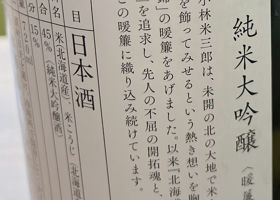 純米大吟醸
小林米三郎は、未開の北の大地で米
を飾ってみせるという熱き想いを胸
の暖簾をあげました。以来『北海
を追求し、先人の不屈の開拓魂と、
この暖簾に織り込み続けています。
目
日本酒
名 米(北海道産)・米こうじ(北海道
合 45%(純米大吟醸酒)
分 15%